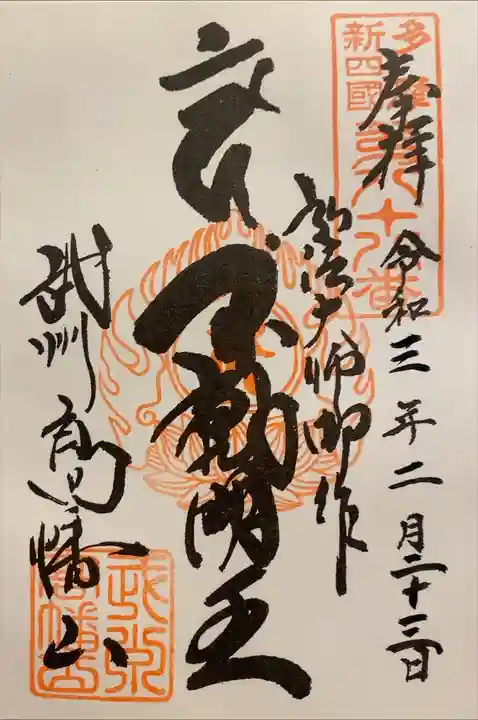 多摩
新四國
第八十八番
奉拝
令和三年二月二十三日
弘法大師御作
不動明王
武州 高幡山
武州
高幡山